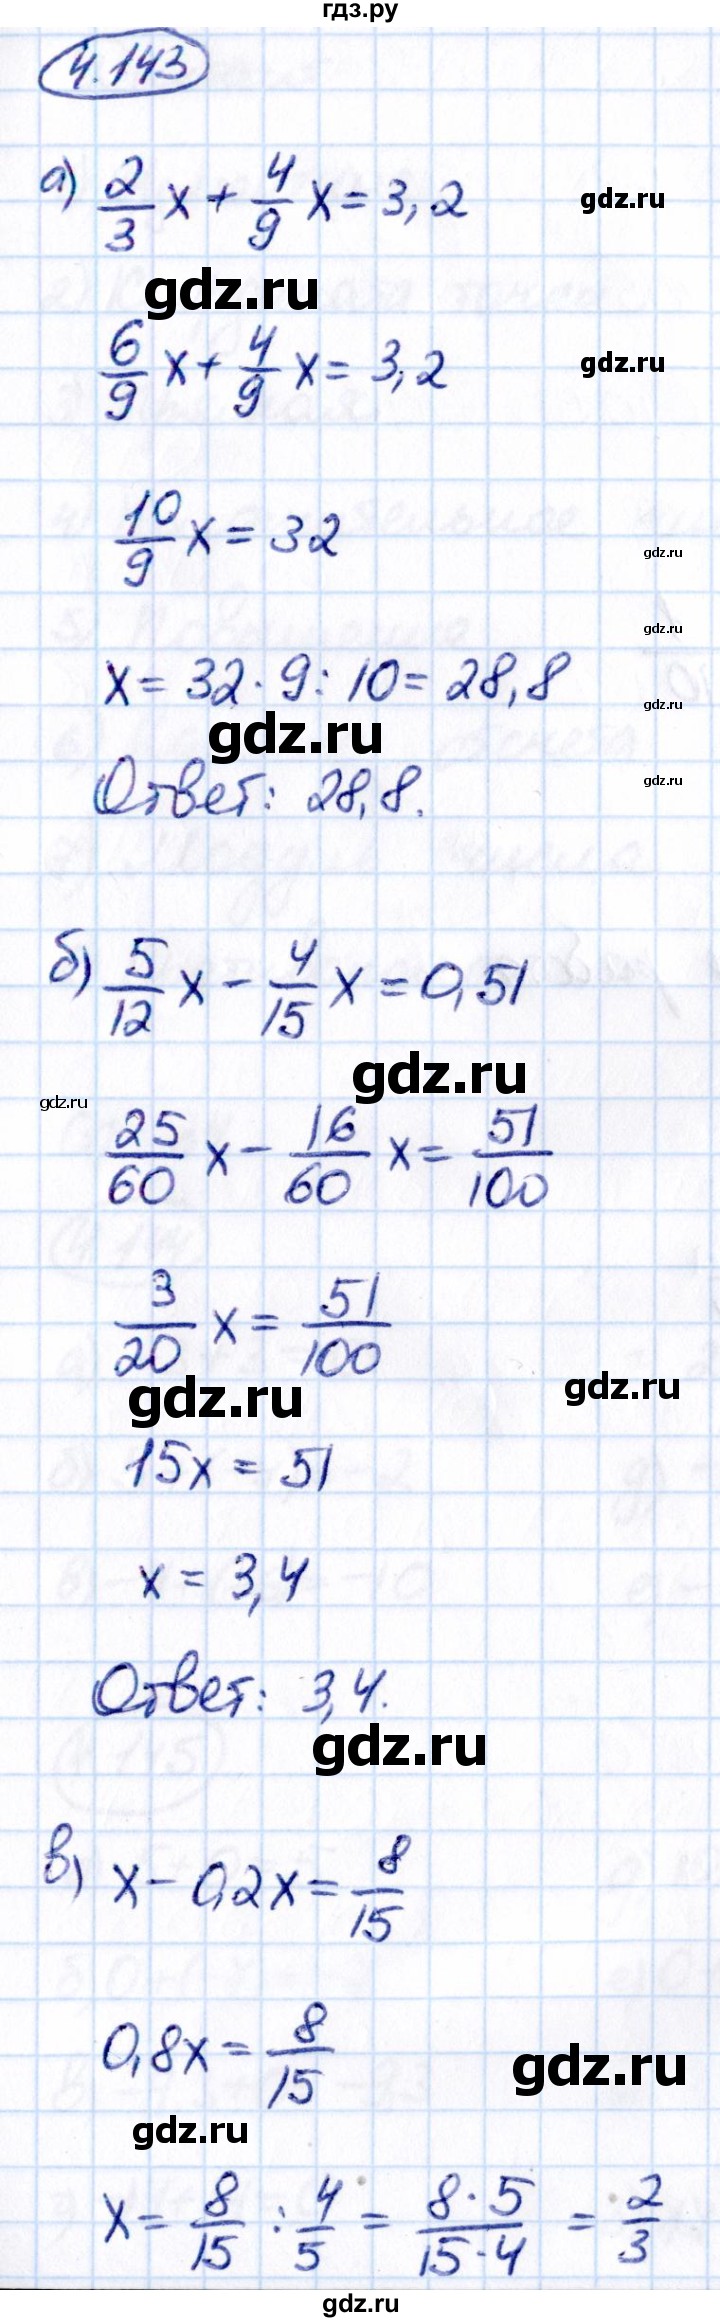 гдз.ру
4.143
а) 2/3 x + 4/9 x = 3,2
gdz.ru
gdz.ru
6/9 x + 4/9 x = 3,2
gdz.ru
10/9 x = 32
gdz.ru
gdz.ru
x = 32 · 9 : 10 = 28,8
gdz.ru
gdz.ru
Ответ: 28,8.
gdz.ru
б) 5/12 x - 4/15 x = 0,51
gdz.ru
gdz.ru
25/60 x - 16/60 x = 51/100
3/20 x = 51/100
gdz.ru
gdz.ru
15x = 51
x = 3,4
Ответ: 3,4.
gdz.ru
в) x - 0,2x = 8/15
0,8x = 8/15
gdz.ru
gdz.ru
x = 8/15 : 4/5 = 8·5/15·4 = 2/3
gdz.ru